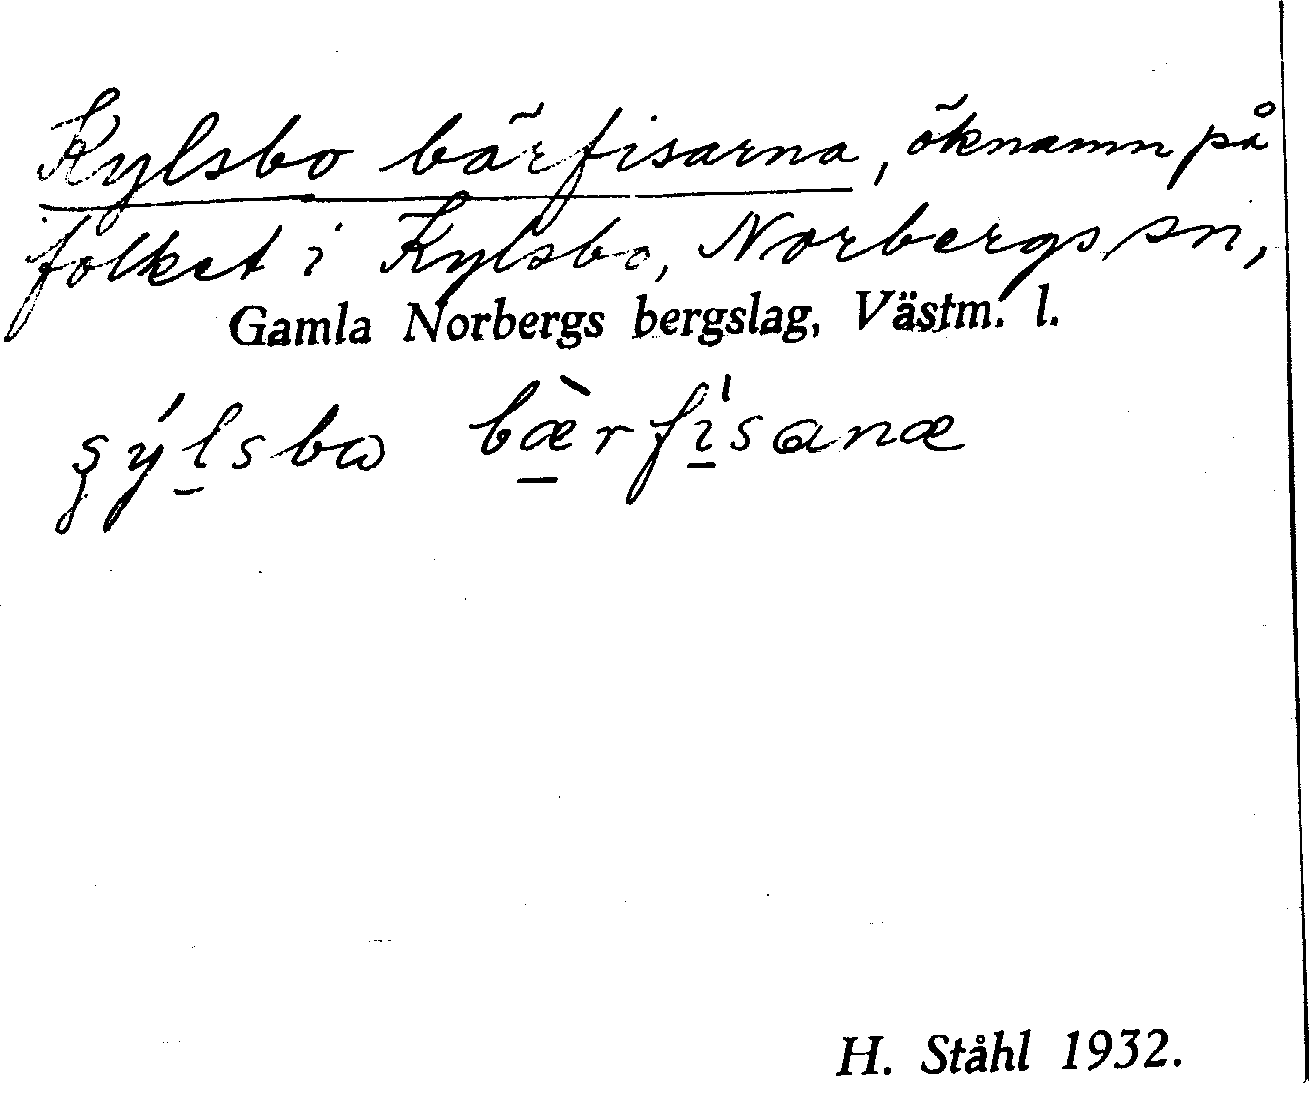 Kylsbo bärfisarna, öknamn på
folket i Kylsbo, Norbergs sn,
Gamla Norbergs bergslag, Västm. l.
ȿýl̠sbω bæ̠̀rfi̠̍sanæ
H. Ståhl 1932.